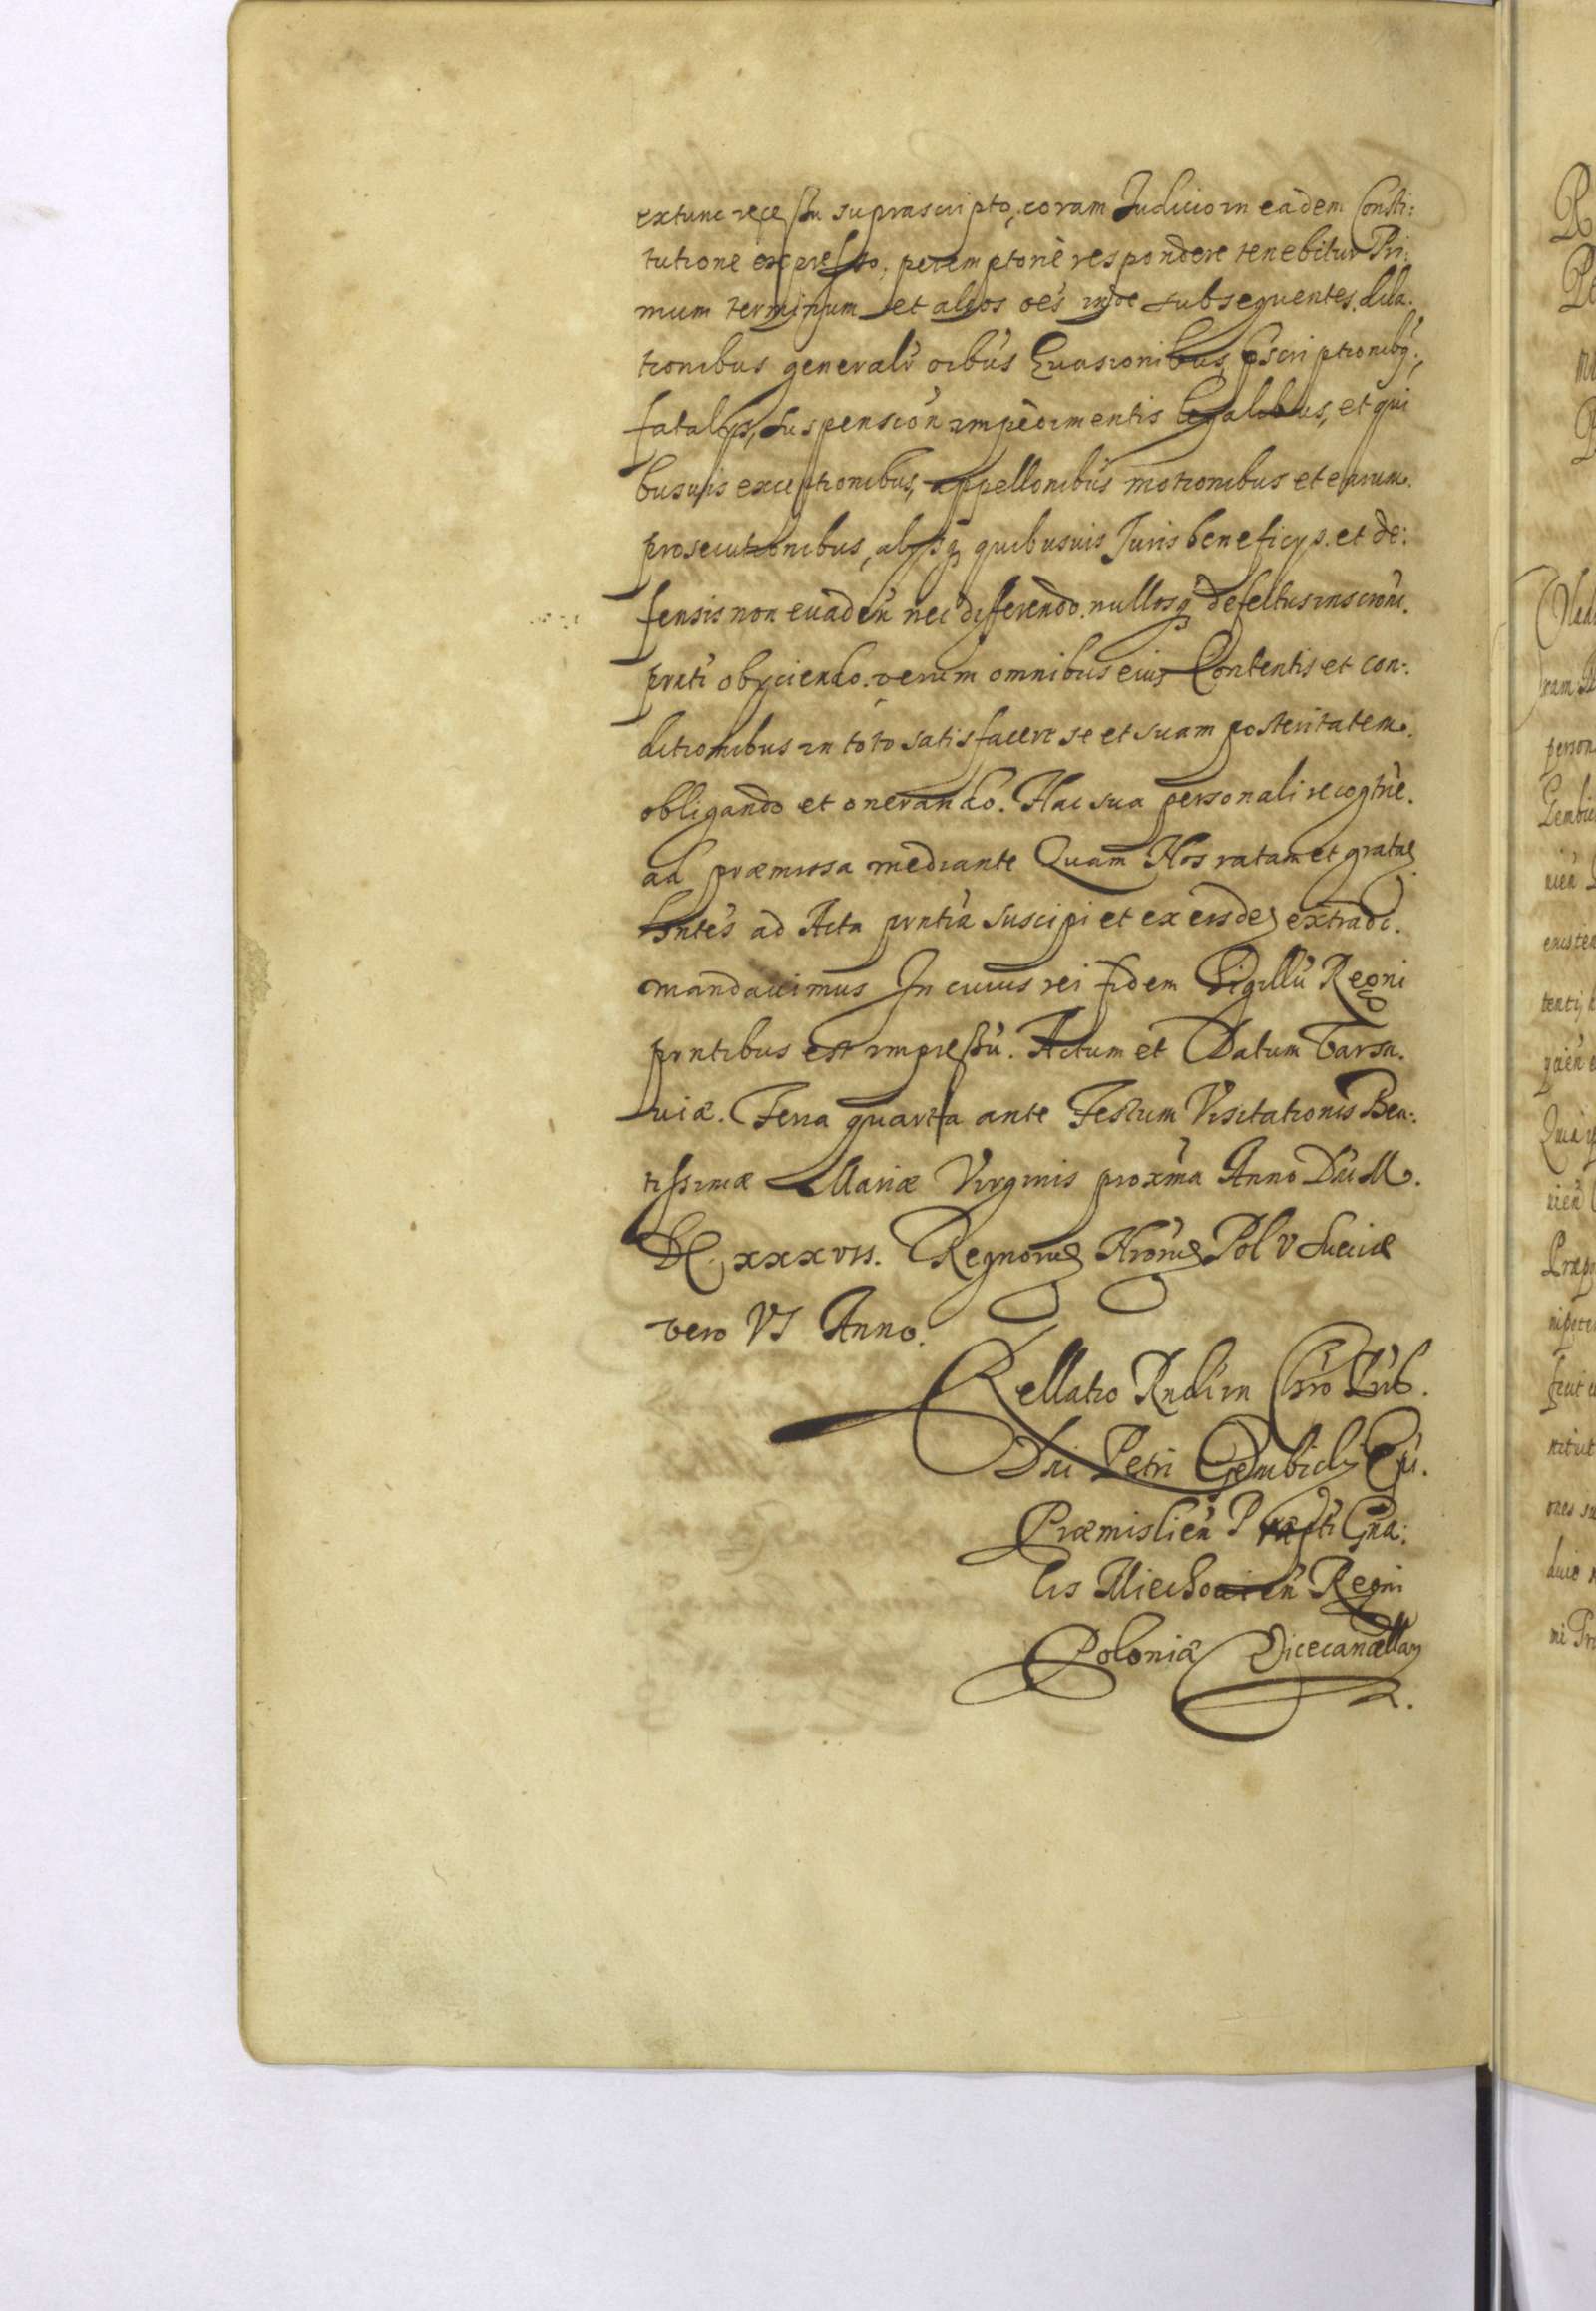 extunc recessu suprascripto, coram Judicio in eadem Consti:
tutione expresso, peremptorie respondere tenebitur Pri:
mum terminum et alios oes inde subsequentes. dila.
tionibus generalr oibus Evasionibus, pscriptionibq.,
fatalijs, suspension impedimentis legalibus, et qui
busuis exceptionibus, appellonibus motionibus et earum.
prosecutionibus, alijsq quibusuis Juris beneficijs. et de:
fensis non euaden nec differendo. nullosq defectus inscroni.
prnti obijciendo. verum omnibus eius Contentis et con:
ditionibus in toto satisfacere se et suam posteritatem.
obligando et onerando. Hac sua personali recogtne.
ad præmissa mediante Quam Nos ratam et gratam
hntes ad Acta prntia suscipi et ex eisdem extradi.
mandauimus In cuius rei fidem Sigillu Regni
prntibus est impressu. Actum et Datum Varsa.
uiæ. Feria quarta ante Festum Visitationis Bea:
tissimæ Mariæ Virginis proxma Anno Dni M.
DC. xxxvii. Regnorum Nrorum Pol v Sueciæ
vero VI Anno.
Rellatio Rndi in Chro Pris.
Dni Petri Gembicki Ep.
Præmislien P ræpti Gna:
lis Miechouien Regni
Poloniæ Vicecancellarij